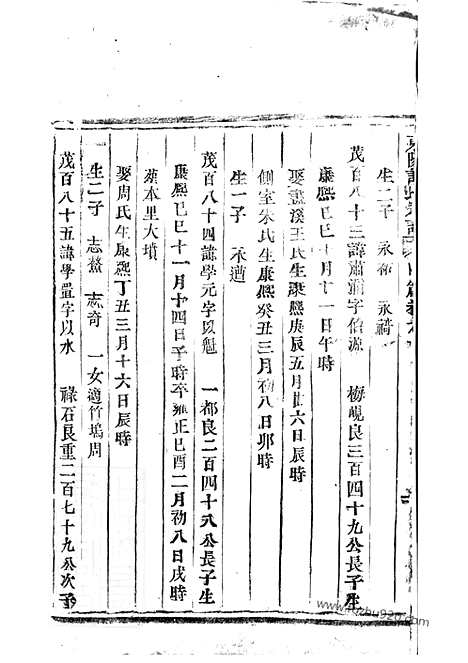 生二子　永祐　永禱
茂百八十三諱肅淵字伯源　梅峴良三百四十九公長子生
康熙己巳十月十一日午時
娶盤溪王氏生康熙庚辰五月廿六日辰時
側室朱氏生康熙癸丑三月初八日卯時
生一子　永遒
茂百八十四諱學元字以魁　一都良二百四十八公長子生
康熙己巳十一月十四日子時卒雍正己酉二月初八日戌時
葬本里大墳
娶周氏生康熙丁丑三月十六日辰時
生二子　志鰲　志奇　一女適竹塢周
茂百八十五諱學疊字以水　祿石良重二百七十九公次子